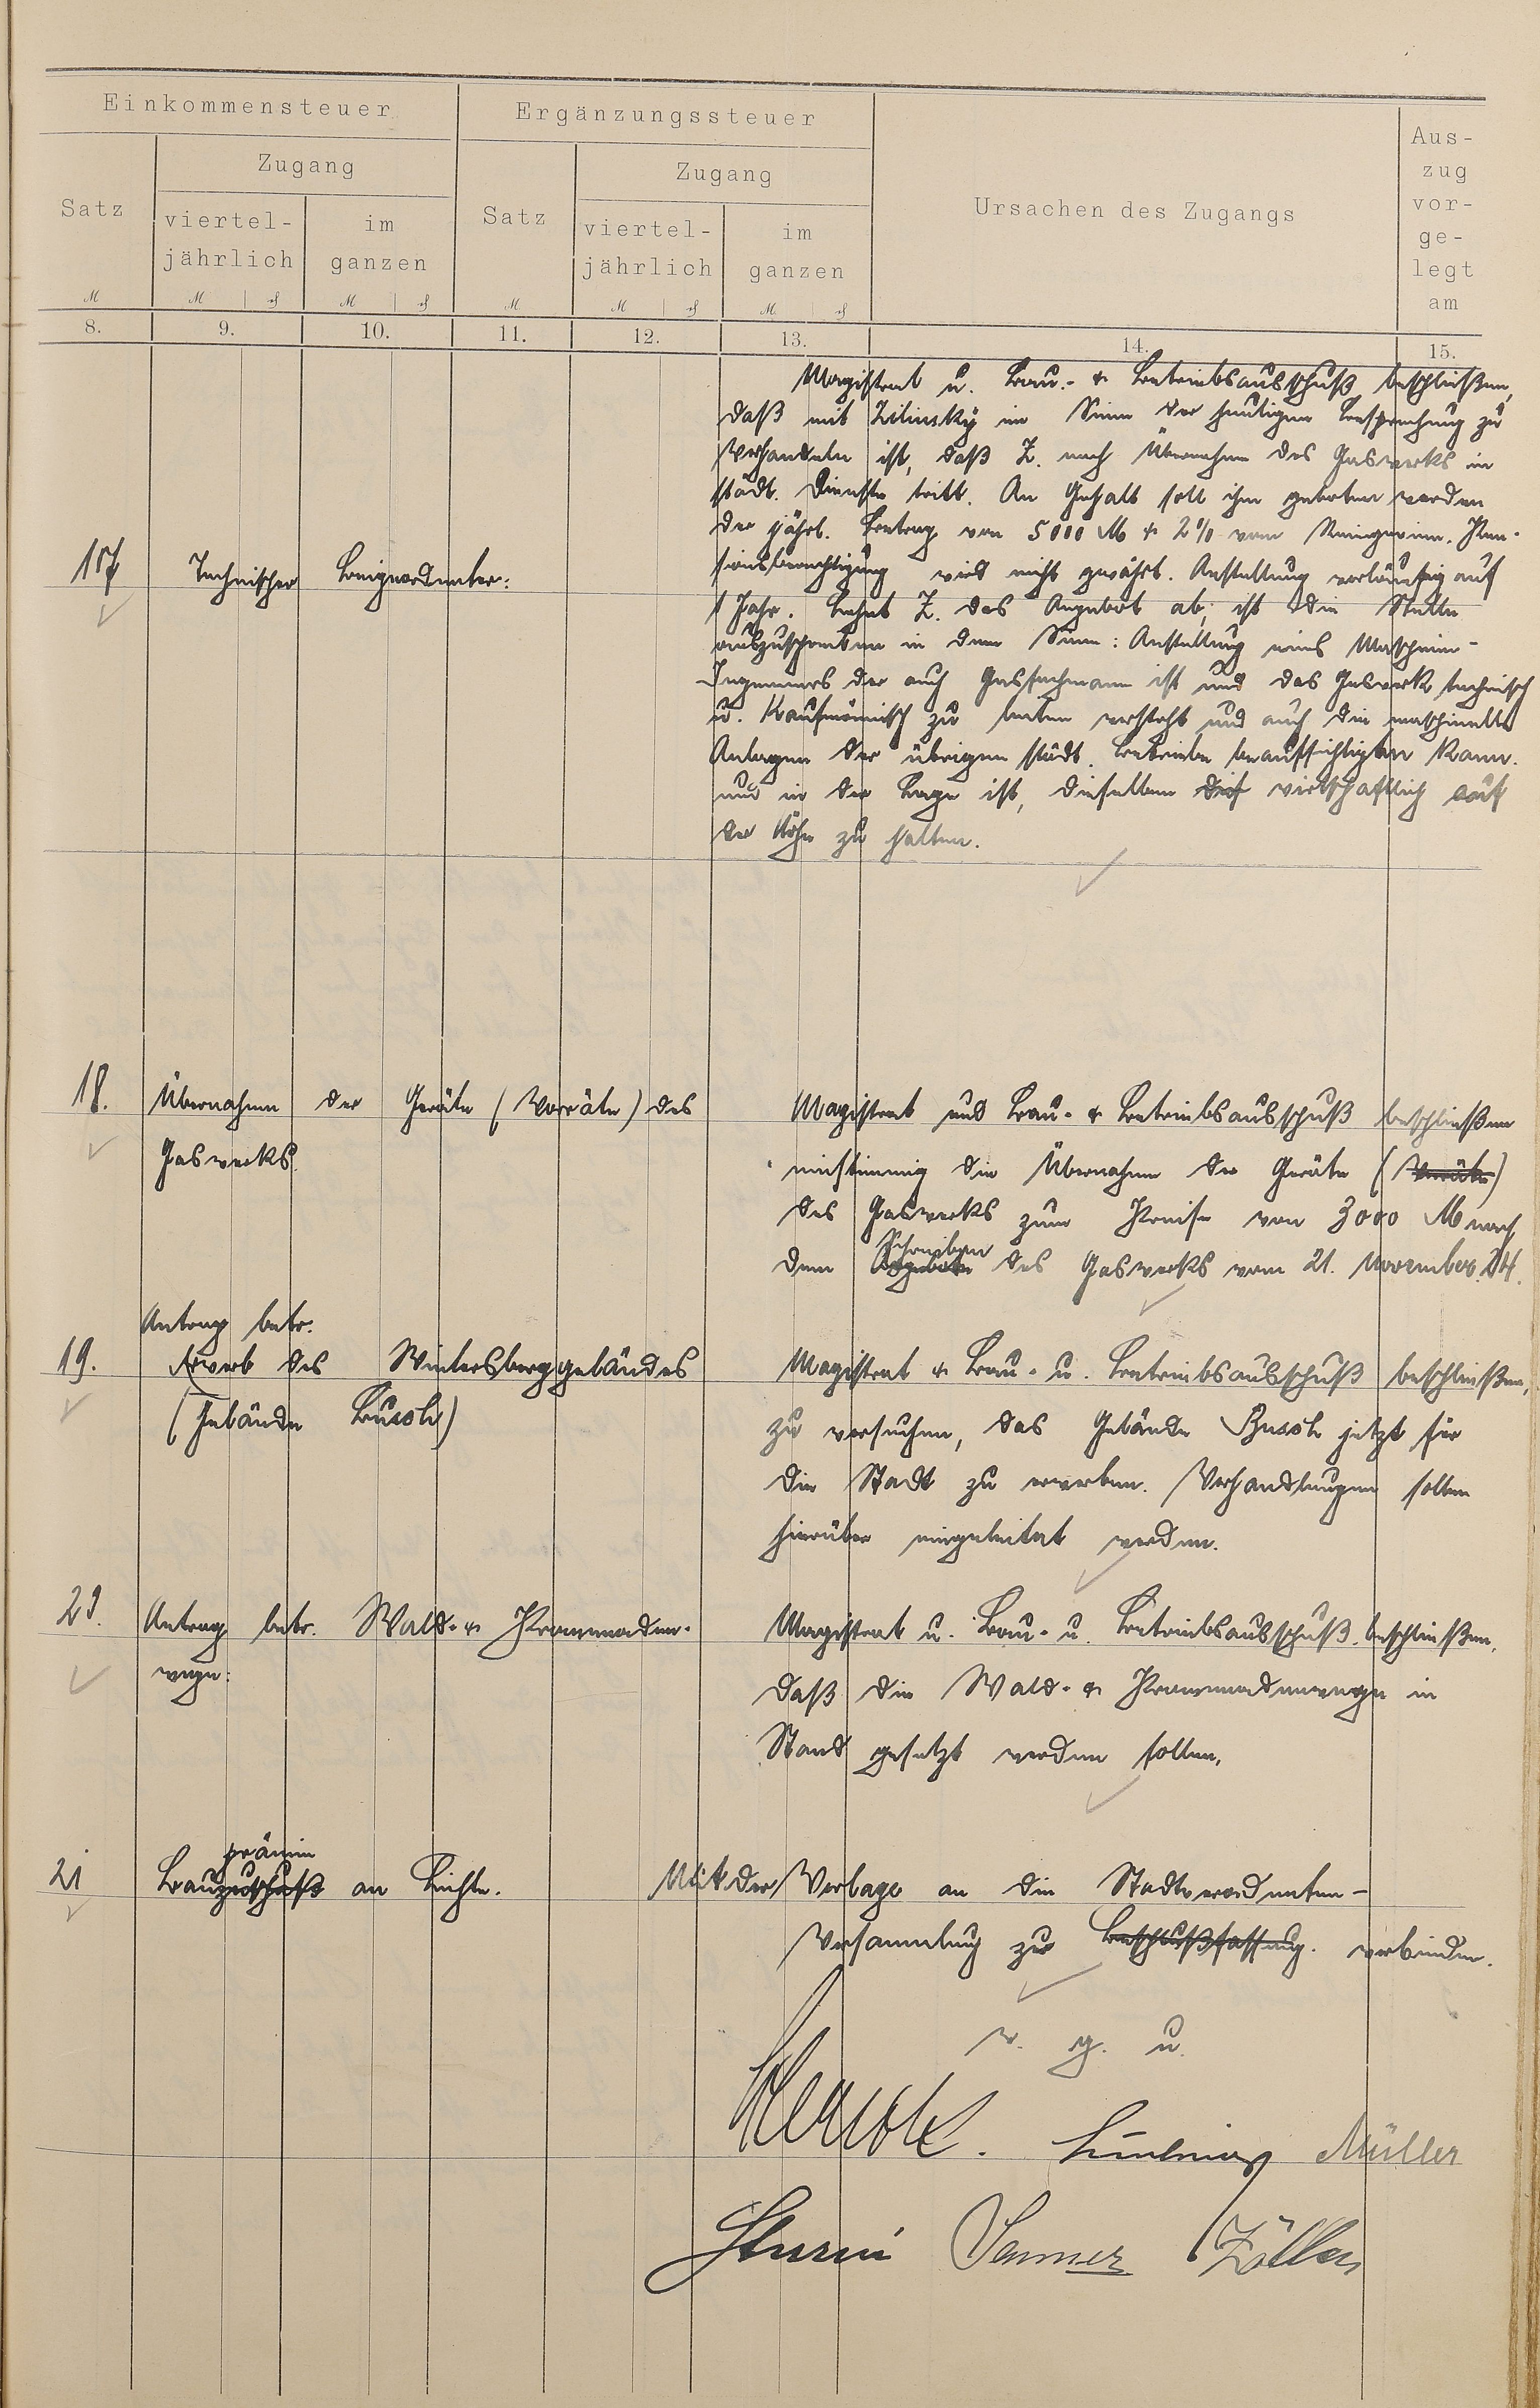 Einkommensteuer
Ergänzungssteuer
Ursachen des Zugangs
Aus-
zug
vor-
ge-
legt
am
Satz
Zugang
viertel-
jährlich
im
ganzen
Satz
Zugang
viertel-
jährlich
im
ganzen
M M ₰ M ₰ M M ₰ M ₰
8. 9. 10. 11. 12. 13. 14. 15.
Magistrat u. Bau- & Betriebsausschuß beschließen,
daß mit Zilinsky im Sinne der heutigen Besprechung zu
verhandeln ist, daß Z. nach Übernahme des Gaswerks in
städt. Dienste tritt. An Gehalt soll ihm geboten werden
der jährl. Betrag von 5000 M & 2% vom Reingewinn. Pen-
sionsberechtigung wird nicht gewährt. Anstellung vorläufig auf
1 Jahr. Lehnt Z. das Angebot ab, ist die Stelle
auszuschreiben in dem Sinne: Anstellung eines Maschinen-
Ingenieurs der auch Gasfachmann ist und das Gaswerk technisch
u. kaufmänisch zu leiten versteht und auch die maschinellen
Anlagen der übrigen städt. Betriebe beaufsichtigen kann.
und in der Lage ist, dieselben wirtschaftlich auf
der Höhe zu halten.
17 Technischer Beigeordneter:
18. Übernahme der Geräte (Vorräte) des
Gaswerks.
Magistrat und Bau- & Betriebsausschuß beschließen
einstimmig die Übernahme der Geräte (Vorräte)
des Gaswerks zum Preise von 3000 M nach
Schreiben
dem Angebote des Gaswerks vom 21. November 24.
Antrag betr.
19. Erwerb des Wintersberggebäudes
(Gebäude Busch)
Magistrat & Bau- u. Betriebsausschuß beschließen,
zu versuchen, das Gebäude Busch jetzt für
die Stadt zu erwerben. Verhandlungen sollen
hierüber eingeleitet werden.
20. Antrag betr. Wald- & Promenaden-
wege:
Magistrat u. Bau- u. Betriebsausschuß beschließen,
daß die Wald- & Promenadenwege in
Stand gesetzt werden sollen.
prämie
21 Bauzuschuß an Lichte.
Mit der Vorlage an die Stadtverordneten-
Versammlung zur Beschlußfassung. verbinden.
v. g. u.
Müller
Sommer Zöller